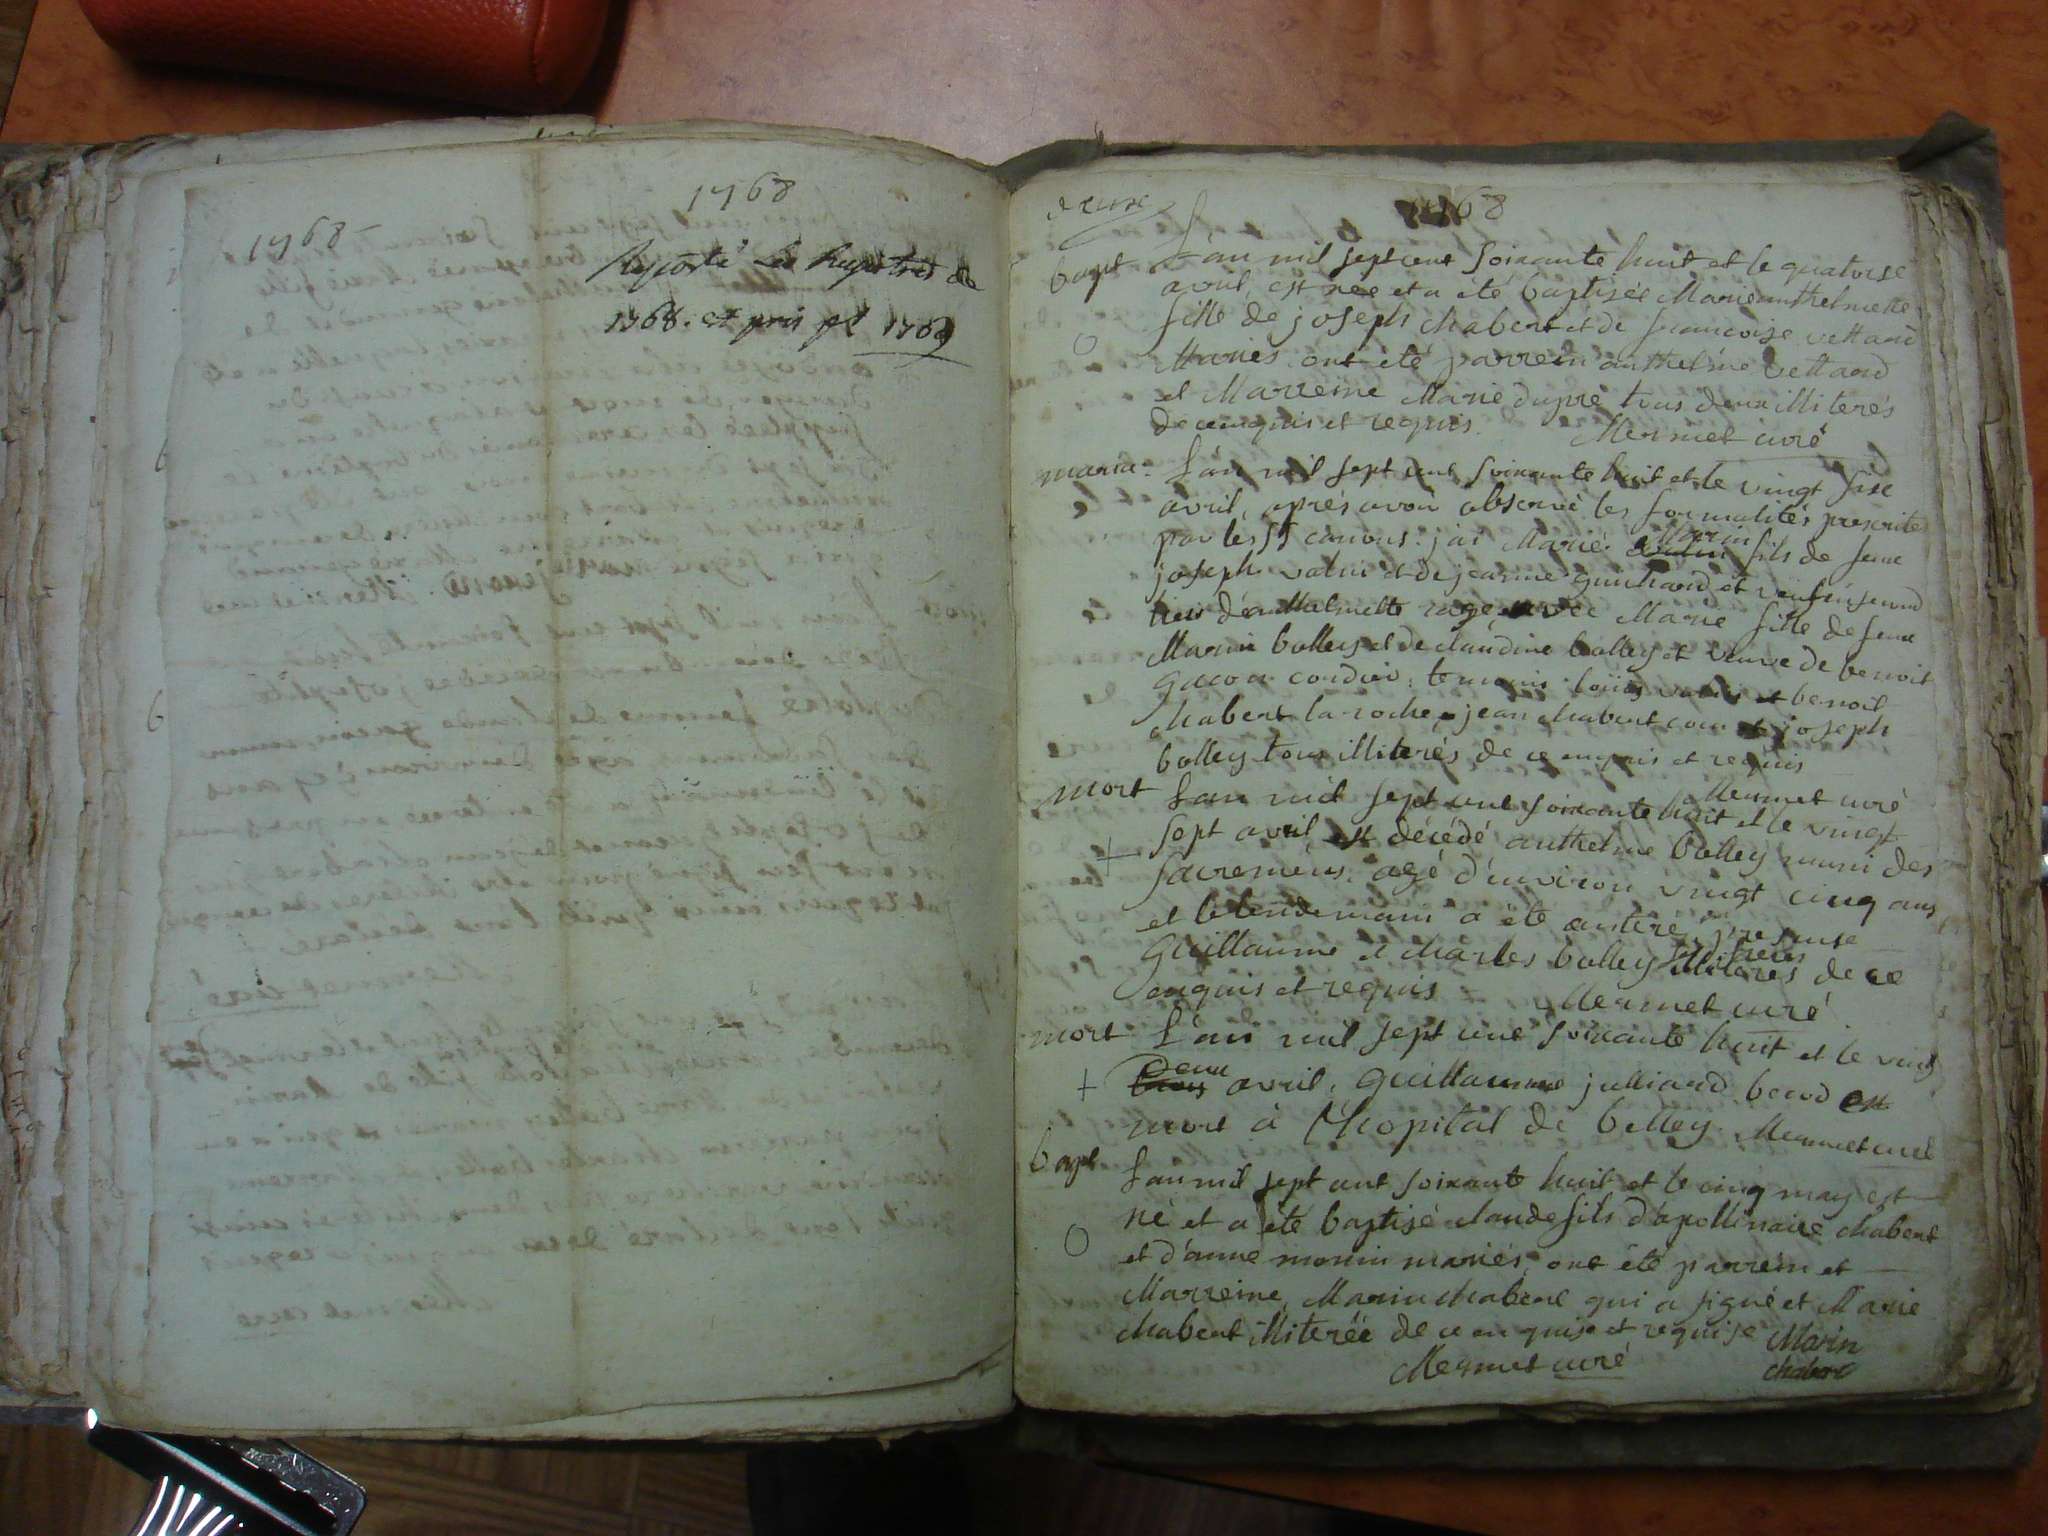 1768
1768
Reporté Les Registres de
1768. et pris pr 1769
1768
bapt L'an mil sept cent soixante huit et le quatorse
avril, est née et a été baptisée Marie anthelmette
fille de joseph chabert et de francoise vettard
Mariés ont été parrein anthelme vettard
et Marreine Marie dupré tous deux illiterés
de ce enquis et requis. Mermet curé
maria. L'an mil sept cent soixante huit et le vingt sise
avril, aprés avoir observé les formalités prescrites
par les SS canons: jai Marié Marin fils de feue
joseph vatin et de jeanne guinhard et veuf en
d'anthelmette avec Marie fille de feue
Marin bolley et de claudine bolley et veuve de benoit
gacon cordier: temoins et benoit
chabert la roche, jean chabert et joseph
bolley tous illiterés de ce enquis et requis
Mermet curé
mort L'an mil sept cent soixante huit et le vingt
sept avril, est décédé anthelme bolley muni des
sacremens, agé d'environ vingt cinq ans
et le lendemain a été enterré presense
Guillaume et charles bolley ses freres illiterés de ce
enquis et requis Mermet curé
mort L'an mil sept cent soixante huit et le vingt
Deux
avril, Guillaume julliard becod est
mort à l'hopital de belley. Mermet curé
bapt L'an mil sept cent soixante huit et le cinq may est
né et a été baptisé claude fils d'apollinaire chabert
et d'anne monin mariés, ont été parrein et
Marreine, Marin chabert qui a signé et Marie
chabert illiterée de ce enquise et requise Marin
Mermet curé chabert